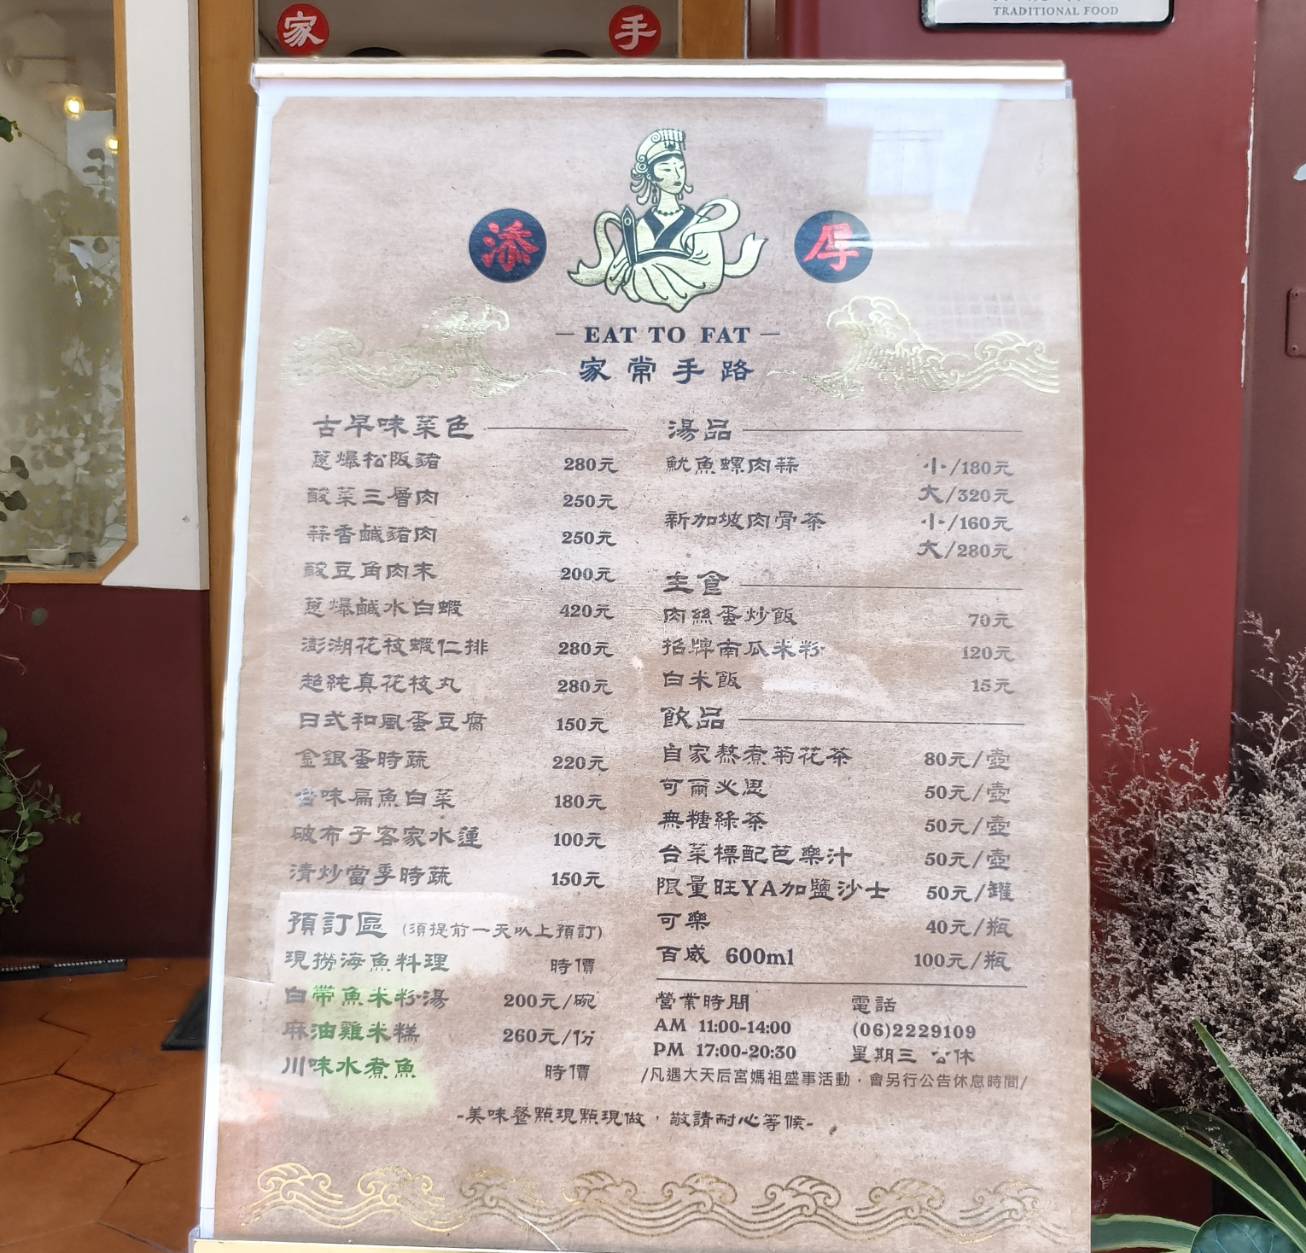 家 手
TRADITIONAL FOOD
添 厚
EAT TO FAT
家常手路
古早味菜色
蔥爆松阪豬 280元
酸菜三層肉 250元
蒜香鹹豬肉 250元
酸豆角肉末 200元
蔥爆鹹水白蝦 420元
澎湖花枝蝦仁排 280元
超純真花枝丸 280元
日式和風蛋豆腐 150元
金銀蛋時蔬 220元
古味扁魚白菜 180元
破布子客家水蓮 100元
清炒當季時蔬 150元
預訂區 (須提前一天以上預訂)
現撈海魚料理 時價
白帶魚米粉湯 200元/碗
麻油雞米糕 260元/份
川味水煮魚 時價
湯品
魷魚螺肉蒜 小/180元
大/320元
新加坡肉骨茶 小/160元
大/280元
主食
肉絲蛋炒飯 70元
招牌南瓜米粉 120元
白米飯 15元
飲品
自家熬煮菊花茶 80元/壺
可爾必思 50元/壺
無糖綠茶 50元/壺
台菜標配芭樂汁 50元/壺
限量旺YA加鹽沙士 50元/罐
可樂 40元/瓶
百威 600ml 100元/瓶
營業時間 電話
AM 11:00-14:00 (06)2229109
PM 17:00-20:30 星期三 公休
/凡遇大天后宮媽祖盛事活動，會另行公告休息時間/
-美味餐點現點現做，敬請耐心等候-